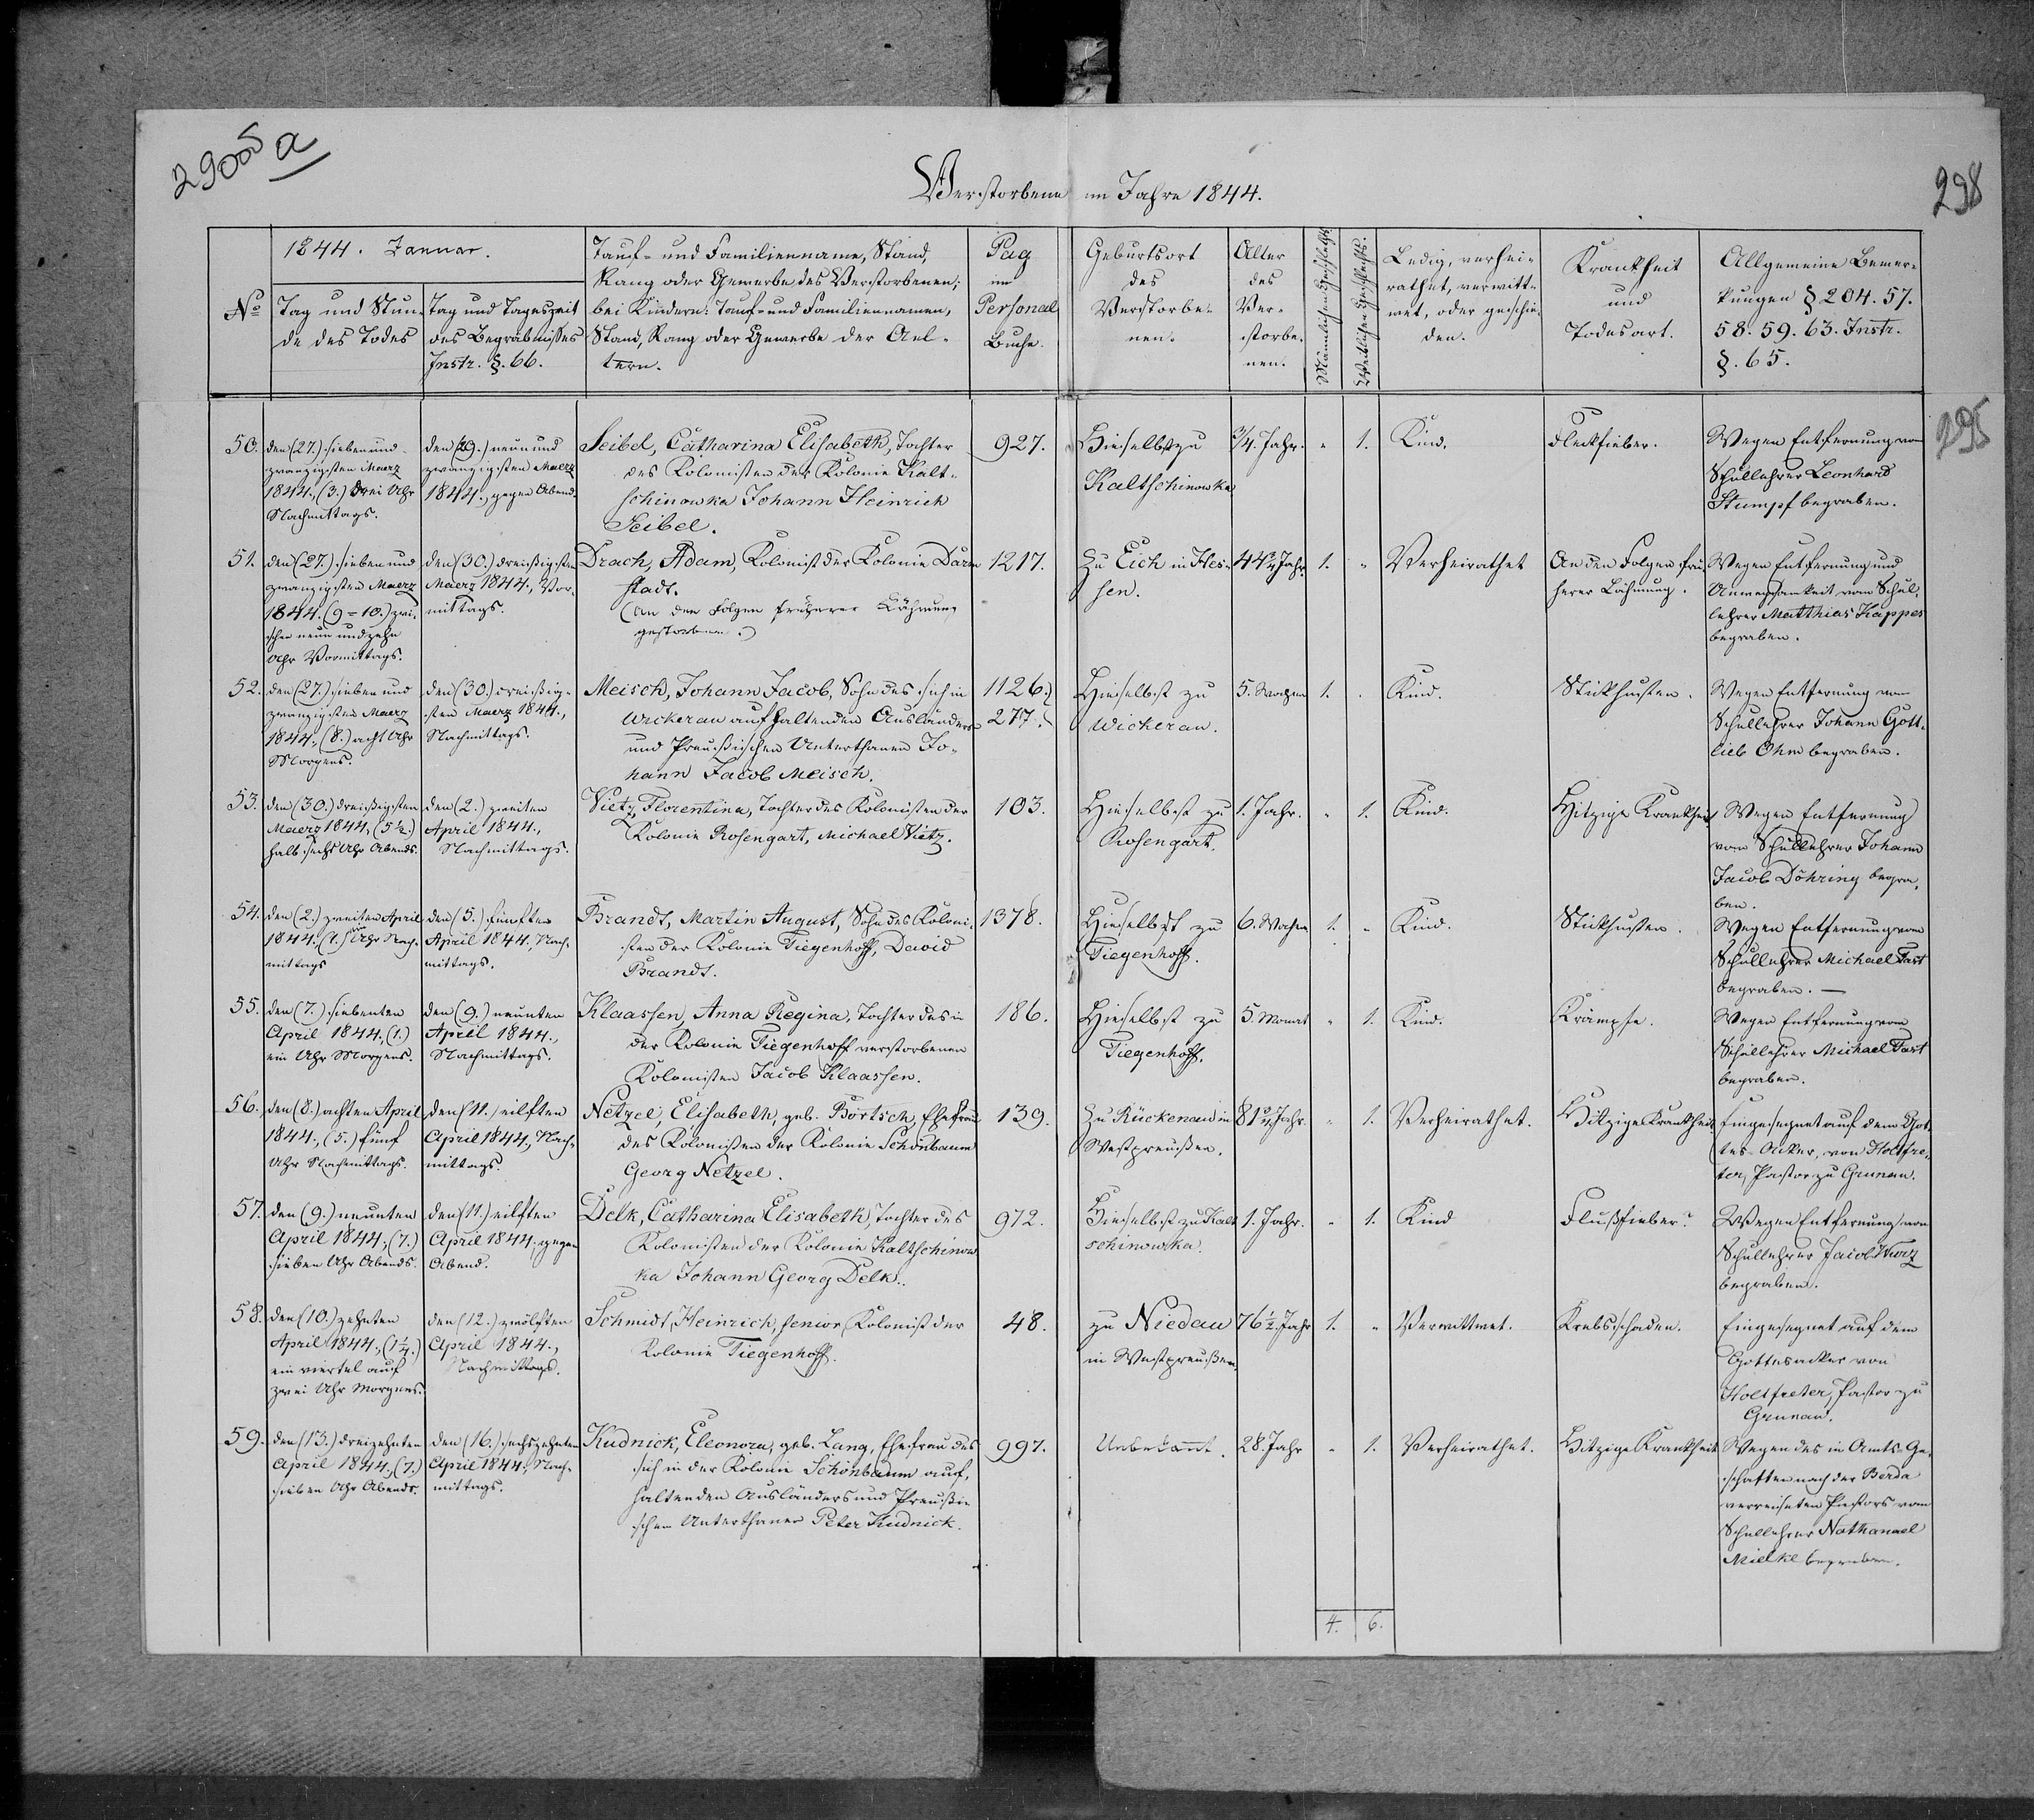 29005 a
298
Verstorbene im Jahre 1844.
1844. Januar.
No
Tag und Stun-
de des Todes
Tag und Tageszeit
des Begräbnisses
Instr. §. 66.
Tauf- und Familienname, Stand,
Rang oder Gewerbe des Verstorbenen;
bei Kindern: Tauf- und Familiennamen,
Stand, Rang oder Gewerbe der Ael-
tern.
Pag
im
Personal
Buche.
Geburtsort
des
Verstorbe-
nen.
Alter
des
Ver-
storbe-
nen.
Männlichen Geschlechts.
Weiblichen Geschlechts.
Ledig, verhei-
rathet, verwitt-
wet, oder geschie-
den.
Krankheit
und
Todesart.
Allgemeine Bemer-
kungen § 204. 57.
58. 59. 63. Instr.
§. 65.
295
50.
den (27.) sieben und
zwanzigsten Maerz
1844., (3.) drei Uhr
Nachmittags.
den (29.) neun und
zwanzigsten Maerz
1844., gegen Abend.
Seibel, Catharina Elisabeth, Tochter
des Kolonisten der Kolonie Kalt-
schinowka Johann Heinrich
Seibel.
927.
Hieselbst zu
Kaltschinowka
3/4. Jahr.
" 1.
Kind.
Fleckfieber.
Wegen Entfernung vom
Schullehrer Leonhard
Stumpf begraben.
51.
den (27.) sieben und
zwanzigsten Maerz
1844. (9=10.) zwi-
schen neun und zehn
Uhr Vormittags.
den (30.) dreißigsten
Maerz 1844., Vor-
mittags.
Drach, Adam, Kolonist der Kolonie Darm
stadt.
(An den Folgen früherer Lähmung
gestorben.)
1217.
Zu Eich in Hes-
sen.
44 3/4 Jahr.
1. "
Verheirathet
An den Folgen frü-
herer Lähmung.
Wegen Entfernung und
vom Schul-
lehrer Matthias Kappes
begraben.
52.
den (27.) sieben und
zwanzigsten Maerz
1844., (8.) acht Uhr
Morgens.
den (30.) dreißig-
sten Maerz 1844.,
Nachmittags.
Meisch, Johann Jacob, Sohn des sich in
Wickerau aufhaltenden Ausländers
und Preußischen Unterthanen Jo-
hann Jacob Meisch.
1126.)
277.
Hieselbst zu
Wickerau.
5. Wochen
1. "
Kind.
Stickhusten.
Wegen Entfernung vom
Schullehrer Johann Gott-
lieb Ohm begraben.
53.
den (30.) dreißigsten
Maerz 1844, (5 1/2.)
halb sechs Uhr Abends.
den (2.) zweiten
April 1844.,
Nachmittags.
Vietz, Florentina, Tochter des Kolonisten der
Kolonie Rosengart, Michael Vietz.
103.
Hieselbst zu
Rosengart.
1. Jahr.
" 1.
Kind.
Hitzige Krankheit
Wegen Entfernung
vom Schullehrer Johann
Jacob Döhring begra-
ben.
54.
den (2.) zweiten April
1844., (1.) ein Uhr Nach-
mittags
den (5.) fünften
April 1844., Nach-
mittags.
Brandt, Martin August, Sohn des Koloni-
sten der Kolonie Tiegenhoff, David
Brandt.
1378.
Hieselbst zu
Tiegenhoff.
6. Wochen
1. "
Kind.
Stickhusten.
Wegen Entfernung vom
Schullehrer Michael Fast
begraben. —
55.
den (7.) siebenten
April 1844., (1.)
ein Uhr Morgens.
den (9.) neunten
April 1844.,
Nachmittags.
Klaassen, Anna Regina, Tochter des in
der Kolonie Tiegenhoff verstorbenen
Kolonisten Jacob Klaassen.
186.
Hieselbst zu
Tiegenhoff.
5. Monat
" 1.
Kind.
Krämpfe.
Wegen Entfernung vom
Schullehrer Michael Fast
begraben.
56.
den (8.) achten April
1844., (5.) fünf
Uhr Nachmittags.
den (11.) eilften
April 1844., Nach-
mittags.
Netzel, Elisabeth, geb. Börtsch, Ehefrau
des Kolonisten der Kolonie Schönbaum
Georg Netzel.
139.
Zu Rückenau in
Westpreußen.
81 3/4 Jahr.
" 1.
Verheirathet.
Hitzige Krankheit
Eingesegnet auf dem Got-
tes-Acker, von Holtfre-
ter, Pastor zu Grunau.
57.
den (9.) neunten
April 1844., (7.)
sieben Uhr Abends.
den (11.) eilften
April 1844., gegen
Abend.
Delk, Catharina Elisabeth, Tochter des
Kolonisten der Kolonie Kaltschinow
ka Johann Georg Delk.
972.
Hieselbst zu Kalt
schinowka.
1. Jahr.
" 1.
Kind
Flußfieber.
Wegen Entfernung vom
Schullehrer Jacob Wurz
begraben.
58.
den (10.) zehnten
April 1844., (1 1/4.)
ein viertel auf
zwei Uhr Morgens.
den (12.) zwölften
April 1844.,
Nachmittags.
Schmidt, Heinrich, senior, Kolonist der
Kolonie Tiegenhoff.
48.
zu Niedau
in Westpreußen.
76 1/2. Jahr
1. "
Verwittwet.
Krebsschaden.
Eingesegnet auf dem
Gottesacker von
Holtfreter, Pastor zu
Grunau.
59.
den (13.) dreizehnten
April 1844., (7.)
sieben Uhr Abends.
den (16.) sechszehnten
April 1844., Nach-
mittags.
Kudnick, Eleonora, geb. Lang, Ehefrau des
sich in der Kolonie Schönbaum auf-
haltenden Ausländers und Preußi-
schen Unterthanen Peter Kudnick.
997.
Unbekannt.
28. Jahr
" 1.
Verheirathet.
Hitzige Krankheit
Wegen des in Amts-Ge-
schäften nach der Berda
verreiseten Pastors vom
Schullehrer Nathanael
Mielke begraben.
4. 6.